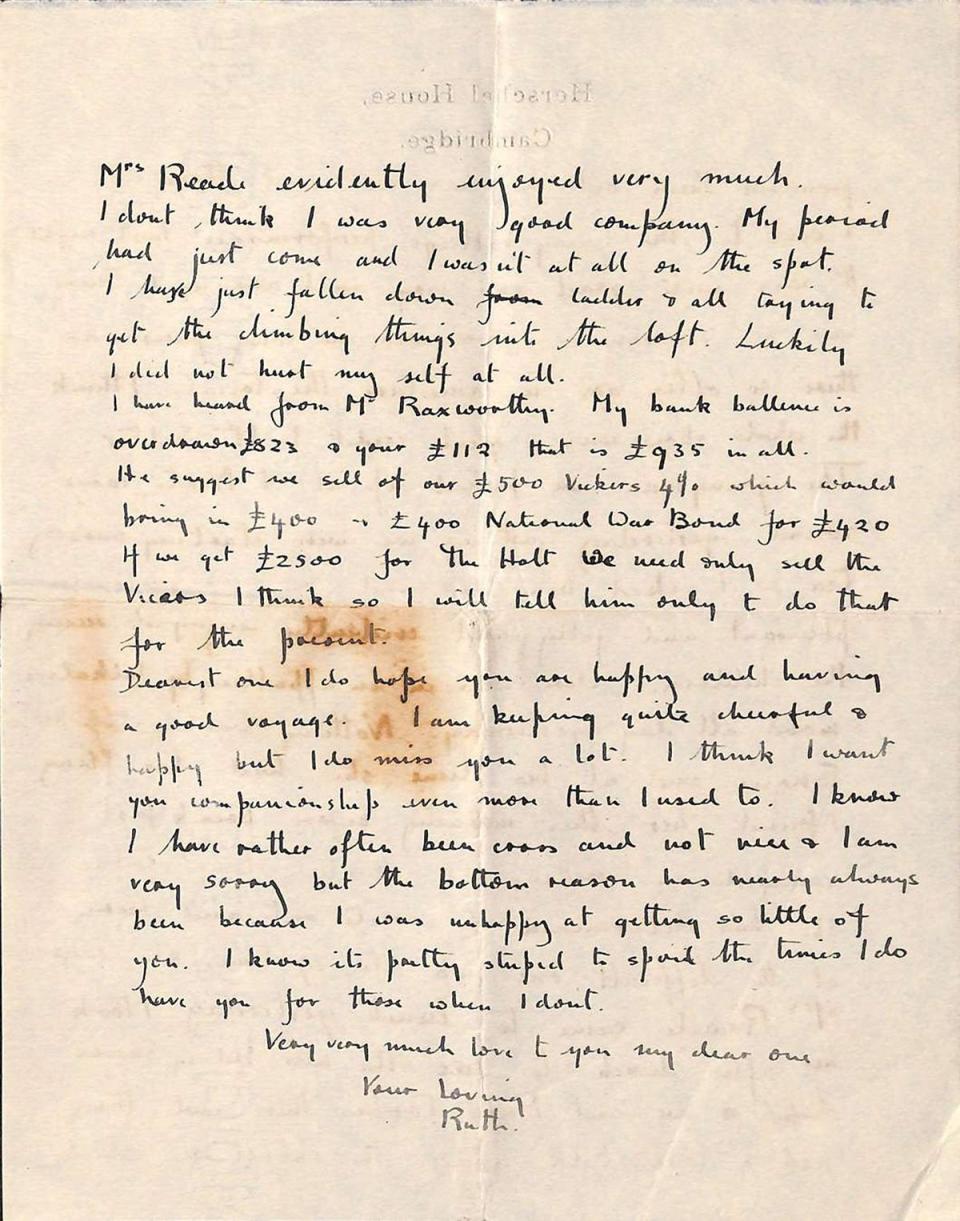 Herschel House,
Cambridge.
Mrs Reade evidently enjoyed very much.
I dont think I was very good company. My period
had just come and I wasn't at all on the spot.
I have just fallen down from ladder & all trying to
get the climbing things into the loft. Luckily
I did not hurt my self at all.
I have heard from Mr Raxworthy. My bank ballence is
overdrawn £823 & your £112 that is £935 in all.
He suggest we sell of our £500 Vickers 4% which would
bring in £400 & £400 National War Bond for £420
If we get £2500 for The Holt We need only sell the
Vicars I think so I will tell him only to do that
for the present.
Dearest one I do hope you are happy and having
a good voyage. I am keeping quite cheerful &
happy but I do miss you a lot. I think I want
you companionship even more than I used to. I know
I have rather often been cross and not nice & I am
very sorry but the bottom reason has nearly always
been because I was unhappy at getting so little of
you. I know its pretty stupid to spoil the times I do
have you for those when I dont.
Very very much love to you my dear one
Your loving
Ruth.